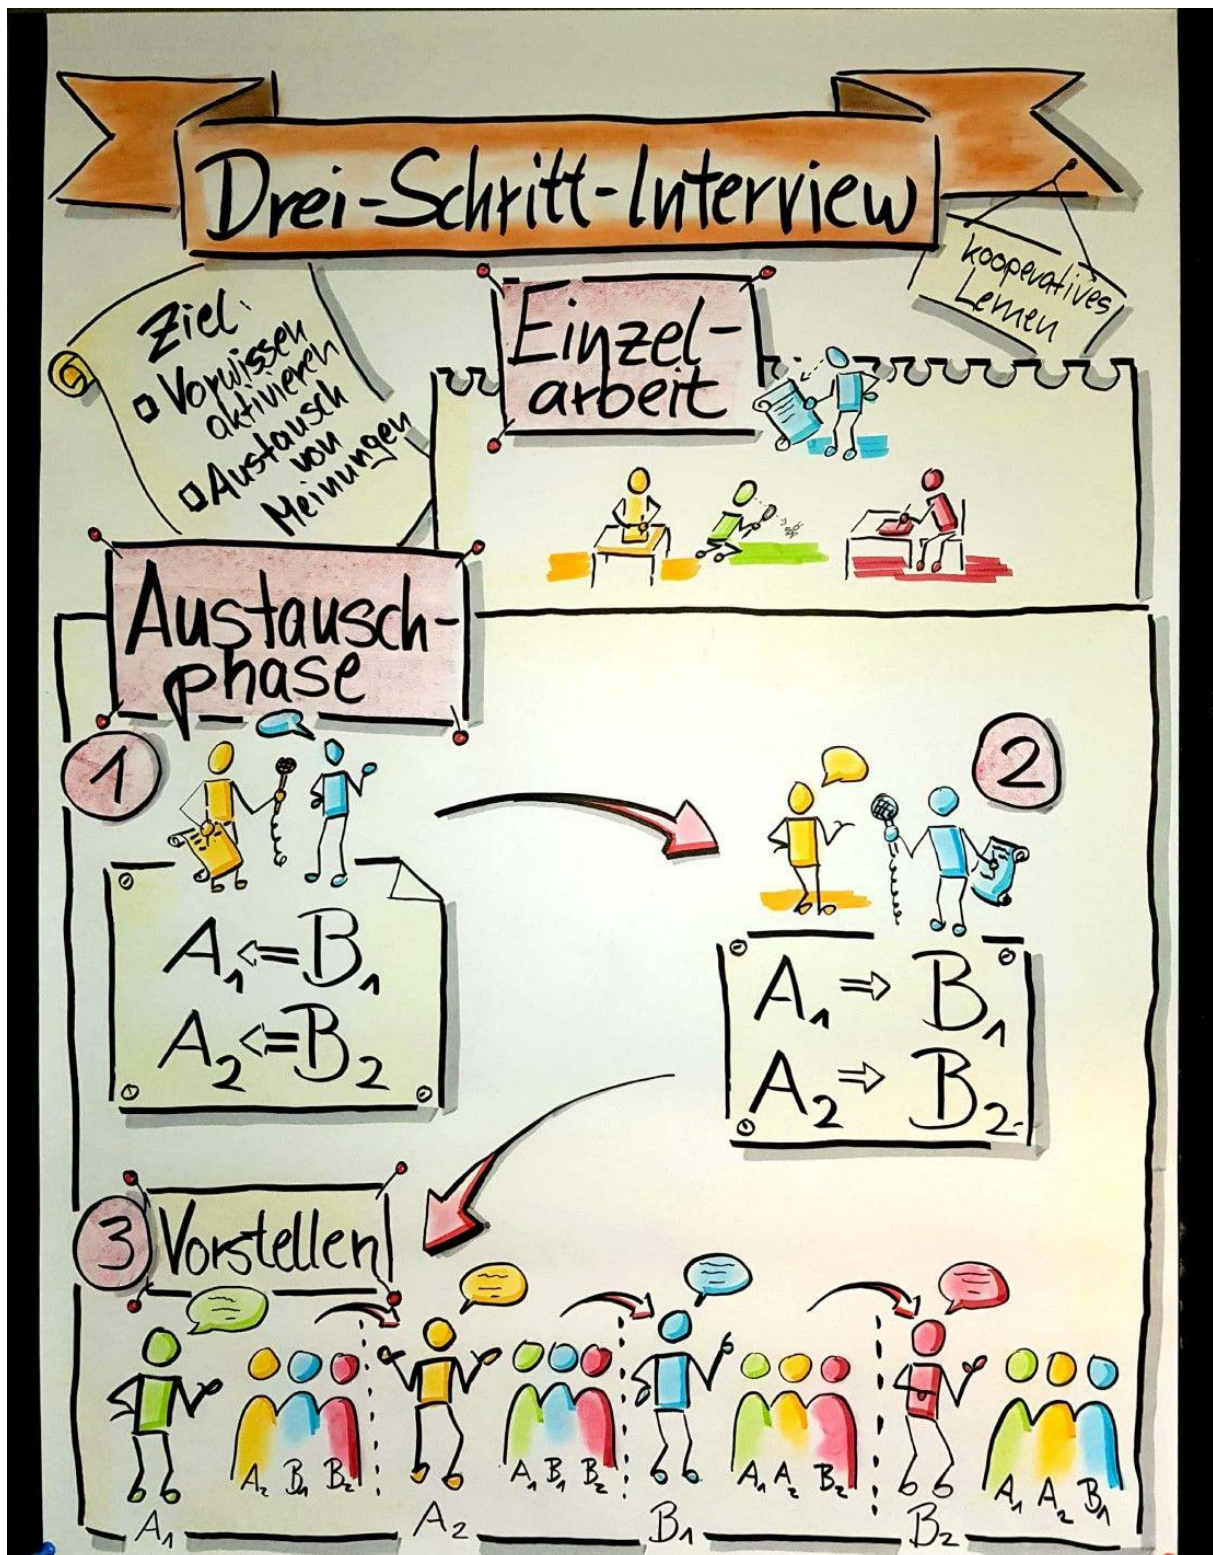 Drei-Schritt-Interview
kooperatives
Lernen
Ziel:
Vorwissen
aktivieren
Austausch
von
Meinungen
Einzel-
arbeit
Austausch-
phase
1
2
A₁ ⇐ B₁
A₂ ⇐ B₂
A₁ ⇒ B₁
A₂ ⇒ B₂
3 Vorstellen
A₂ B₁ B₂
A₁ B₁ B₂
A₁ A₂ B₂
A₁ A₂ B₁
A₁
A₂
B₁
B₂